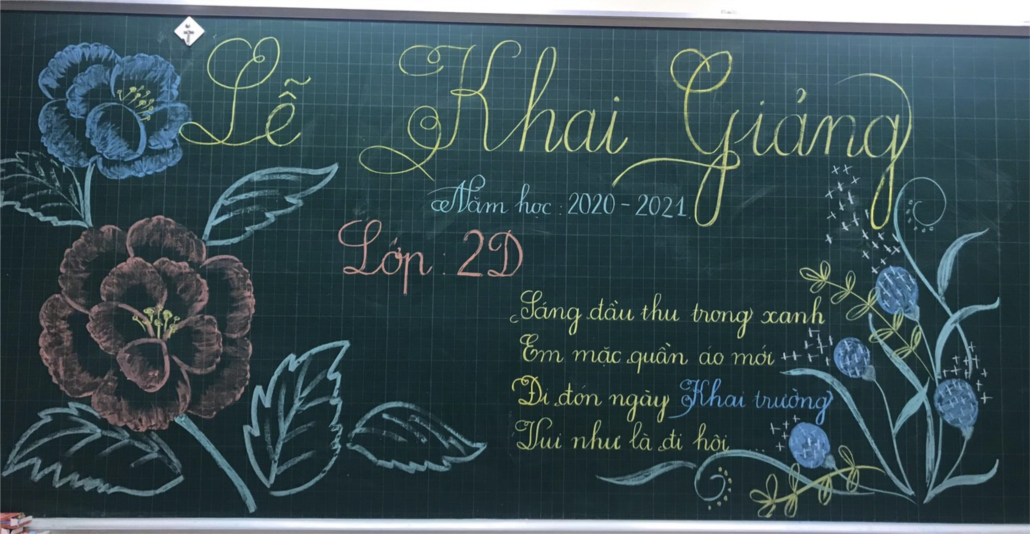 Lễ Khai Giảng
Năm học: 2020 - 2021
Lớp: 2D
Sáng đầu thu trong xanh
Em mặc quần áo mới
Đi đón ngày Khai trường
Vui như là đi hội